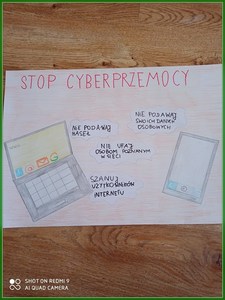 STOP CYBERPRZEMOCY
NIE PODAWAJ
HASEŁ
NIE PODAWAJ
SWOICH DANYCH
OSOBOWYCH
NIE UFAJ
OSOBOM POZNANYM
W SIECI
SZANUJ
UŻYTKOWNIKÓW
INTERNETU
SHOT ON REDMI 9
AI QUAD CAMERA